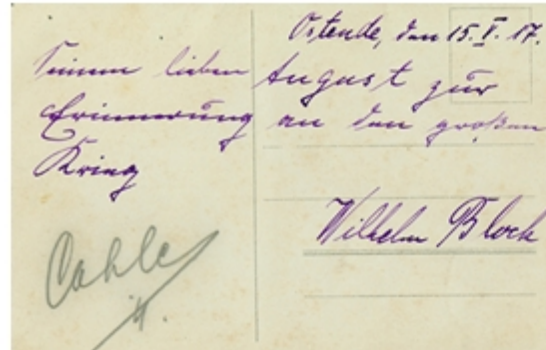 Ostende, den 15.V.17.
Seinem lieben August zur
Erinnerung an den großen
Krieg
Wilhelm Block
Cahle
4.